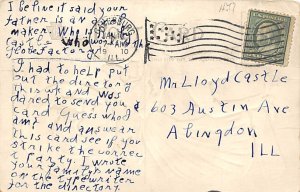 I believe it said your
father is an
maker. Why
castle who works in the
globe factory.
I had to help put
out the directory
this wk and was
dared to send you a
card Guess who I
am? and answear
this card see if you
strike the correc
t party. I wrote
your family name
on the typewriter
for the directory
ILL
Mr Lloyd Castle
603 Austin Ave
Abingdon
ILL